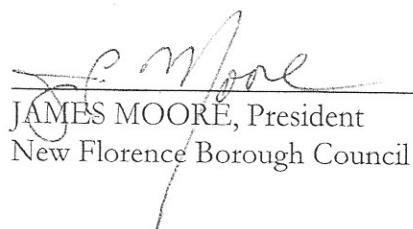 J C Moore
JAMES MOORE, President
New Florence Borough Council